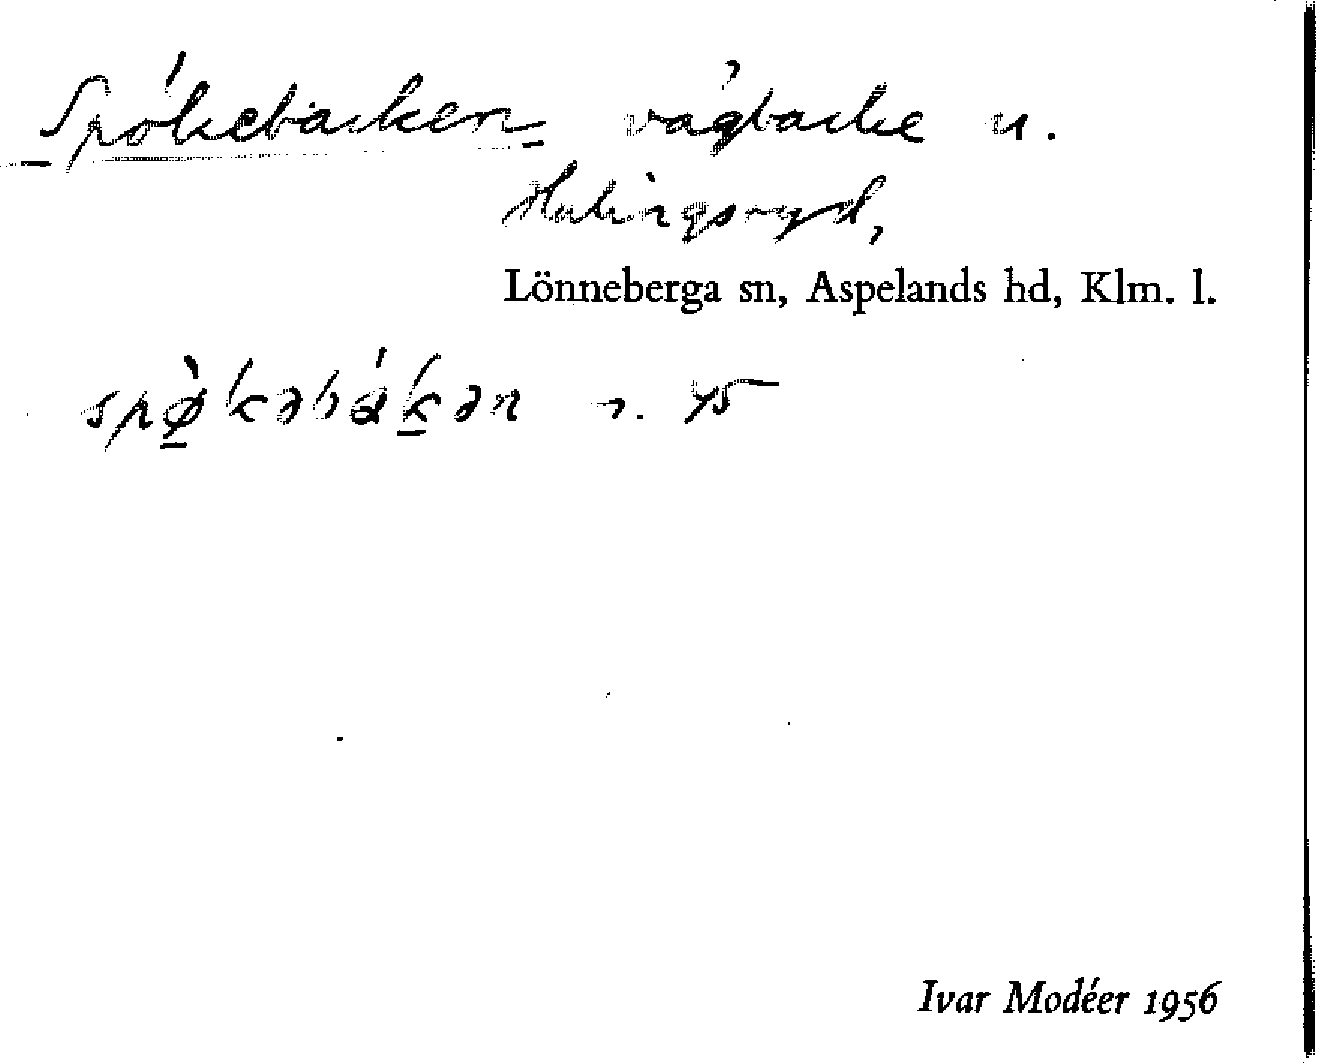 Spökebacken vägbacke n.
Hahingsryd,
Lönneberga sn, Aspelands hd, Klm. l.
spø̀kəbákən
Ivar Modéer 1956